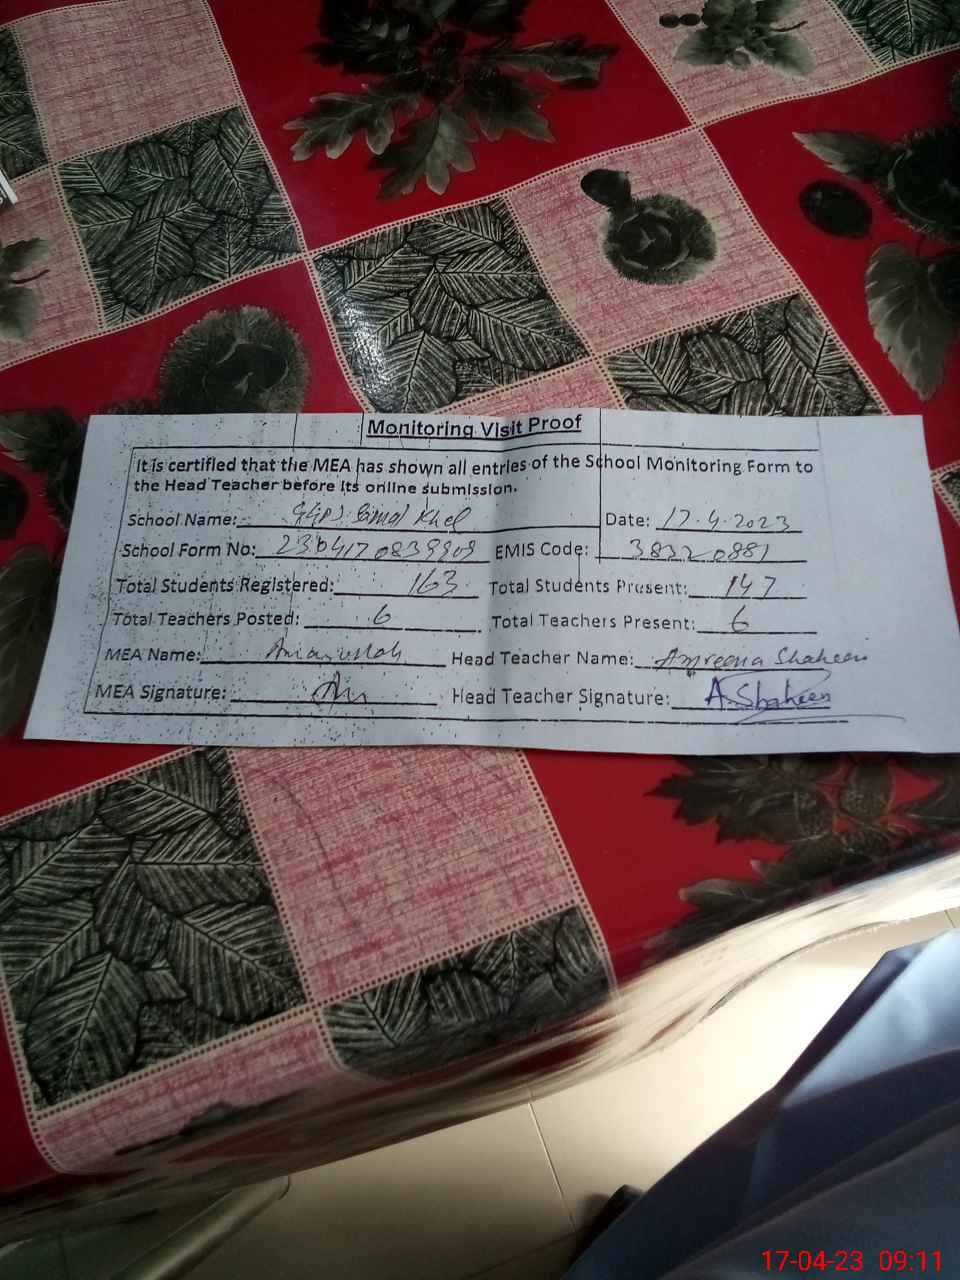 Monitoring Visit Proof
It is certified that the MEA has shown all entries of the School Monitoring Form to
the Head Teacher before its online submission.
School Name: Khel Date: 17.4.2023
School Form No: EMIS Code: 38320881
Total Students Registered: 163 Total Students Present: 147
Total Teachers Posted: 6 Total Teachers Present: 6
MEA Name: Head Teacher Name: Shaheen
MEA Signature: Head Teacher Signature: A.Shaheen
17-04-23 09:11